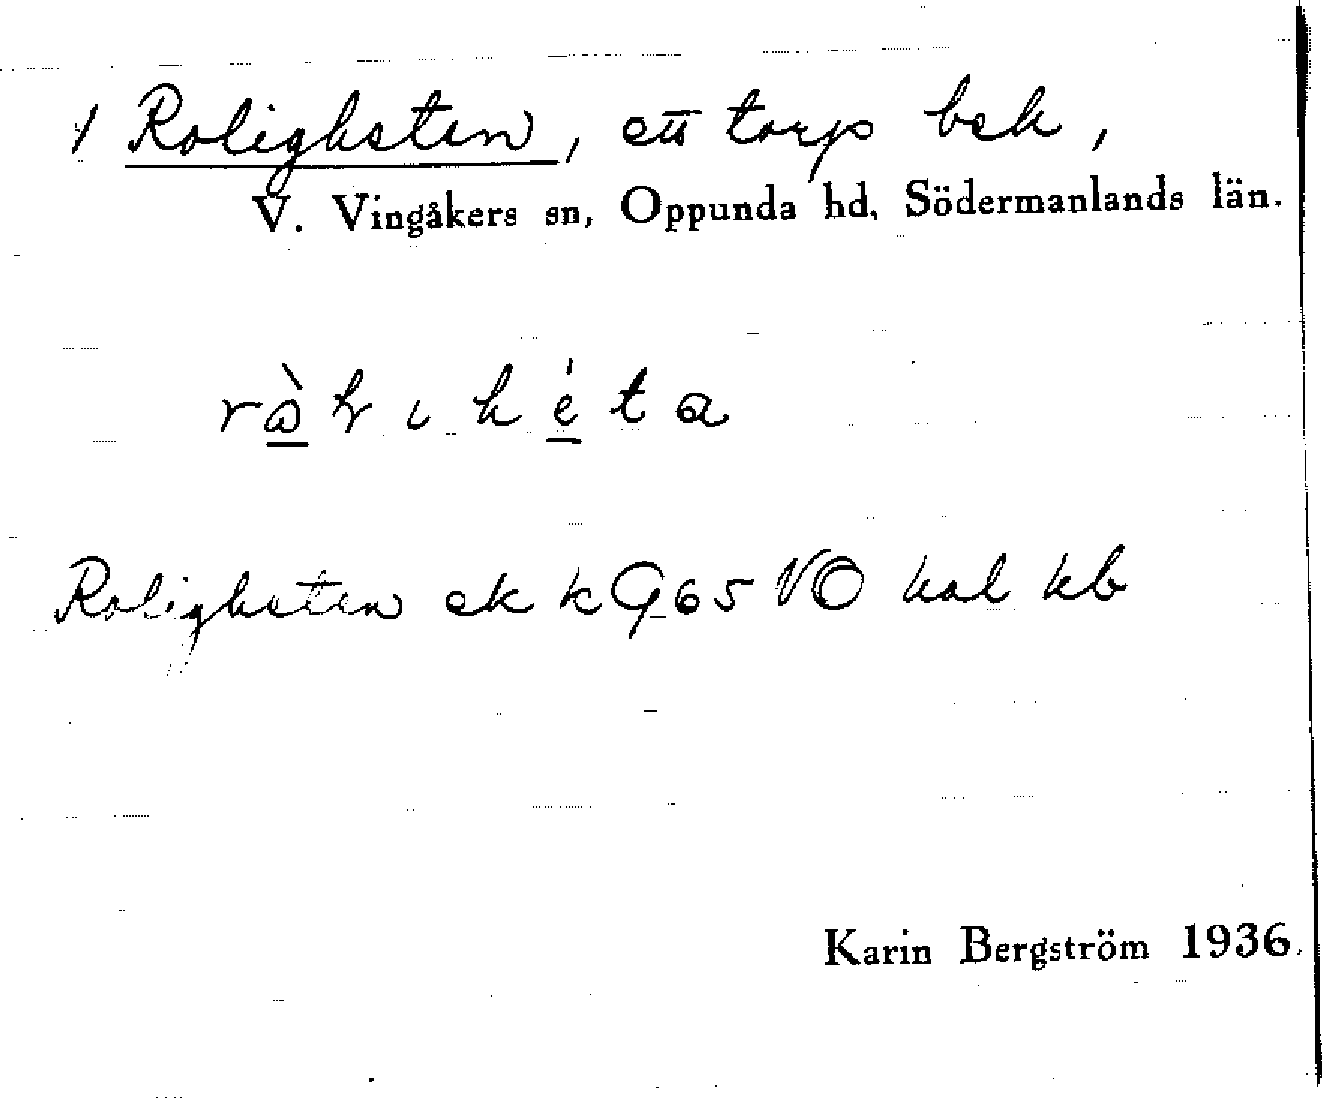 1 Roligheten, ett torp bek,
V. Vingåkers sn, Oppunda hd, Södermanlands län.
Roligheten ek k G65 VO kal kb
Karin Bergström 1936.